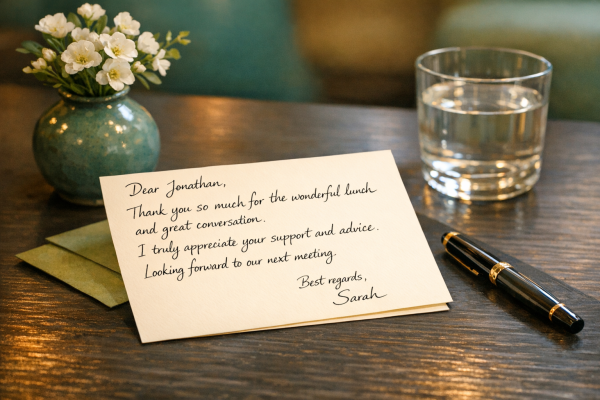 Dear Jonathan,
Thank you so much for the wonderful lunch
and great conversation.
I truly appreciate your support and advice.
Looking forward to our next meeting.
Best regards,
Sarah